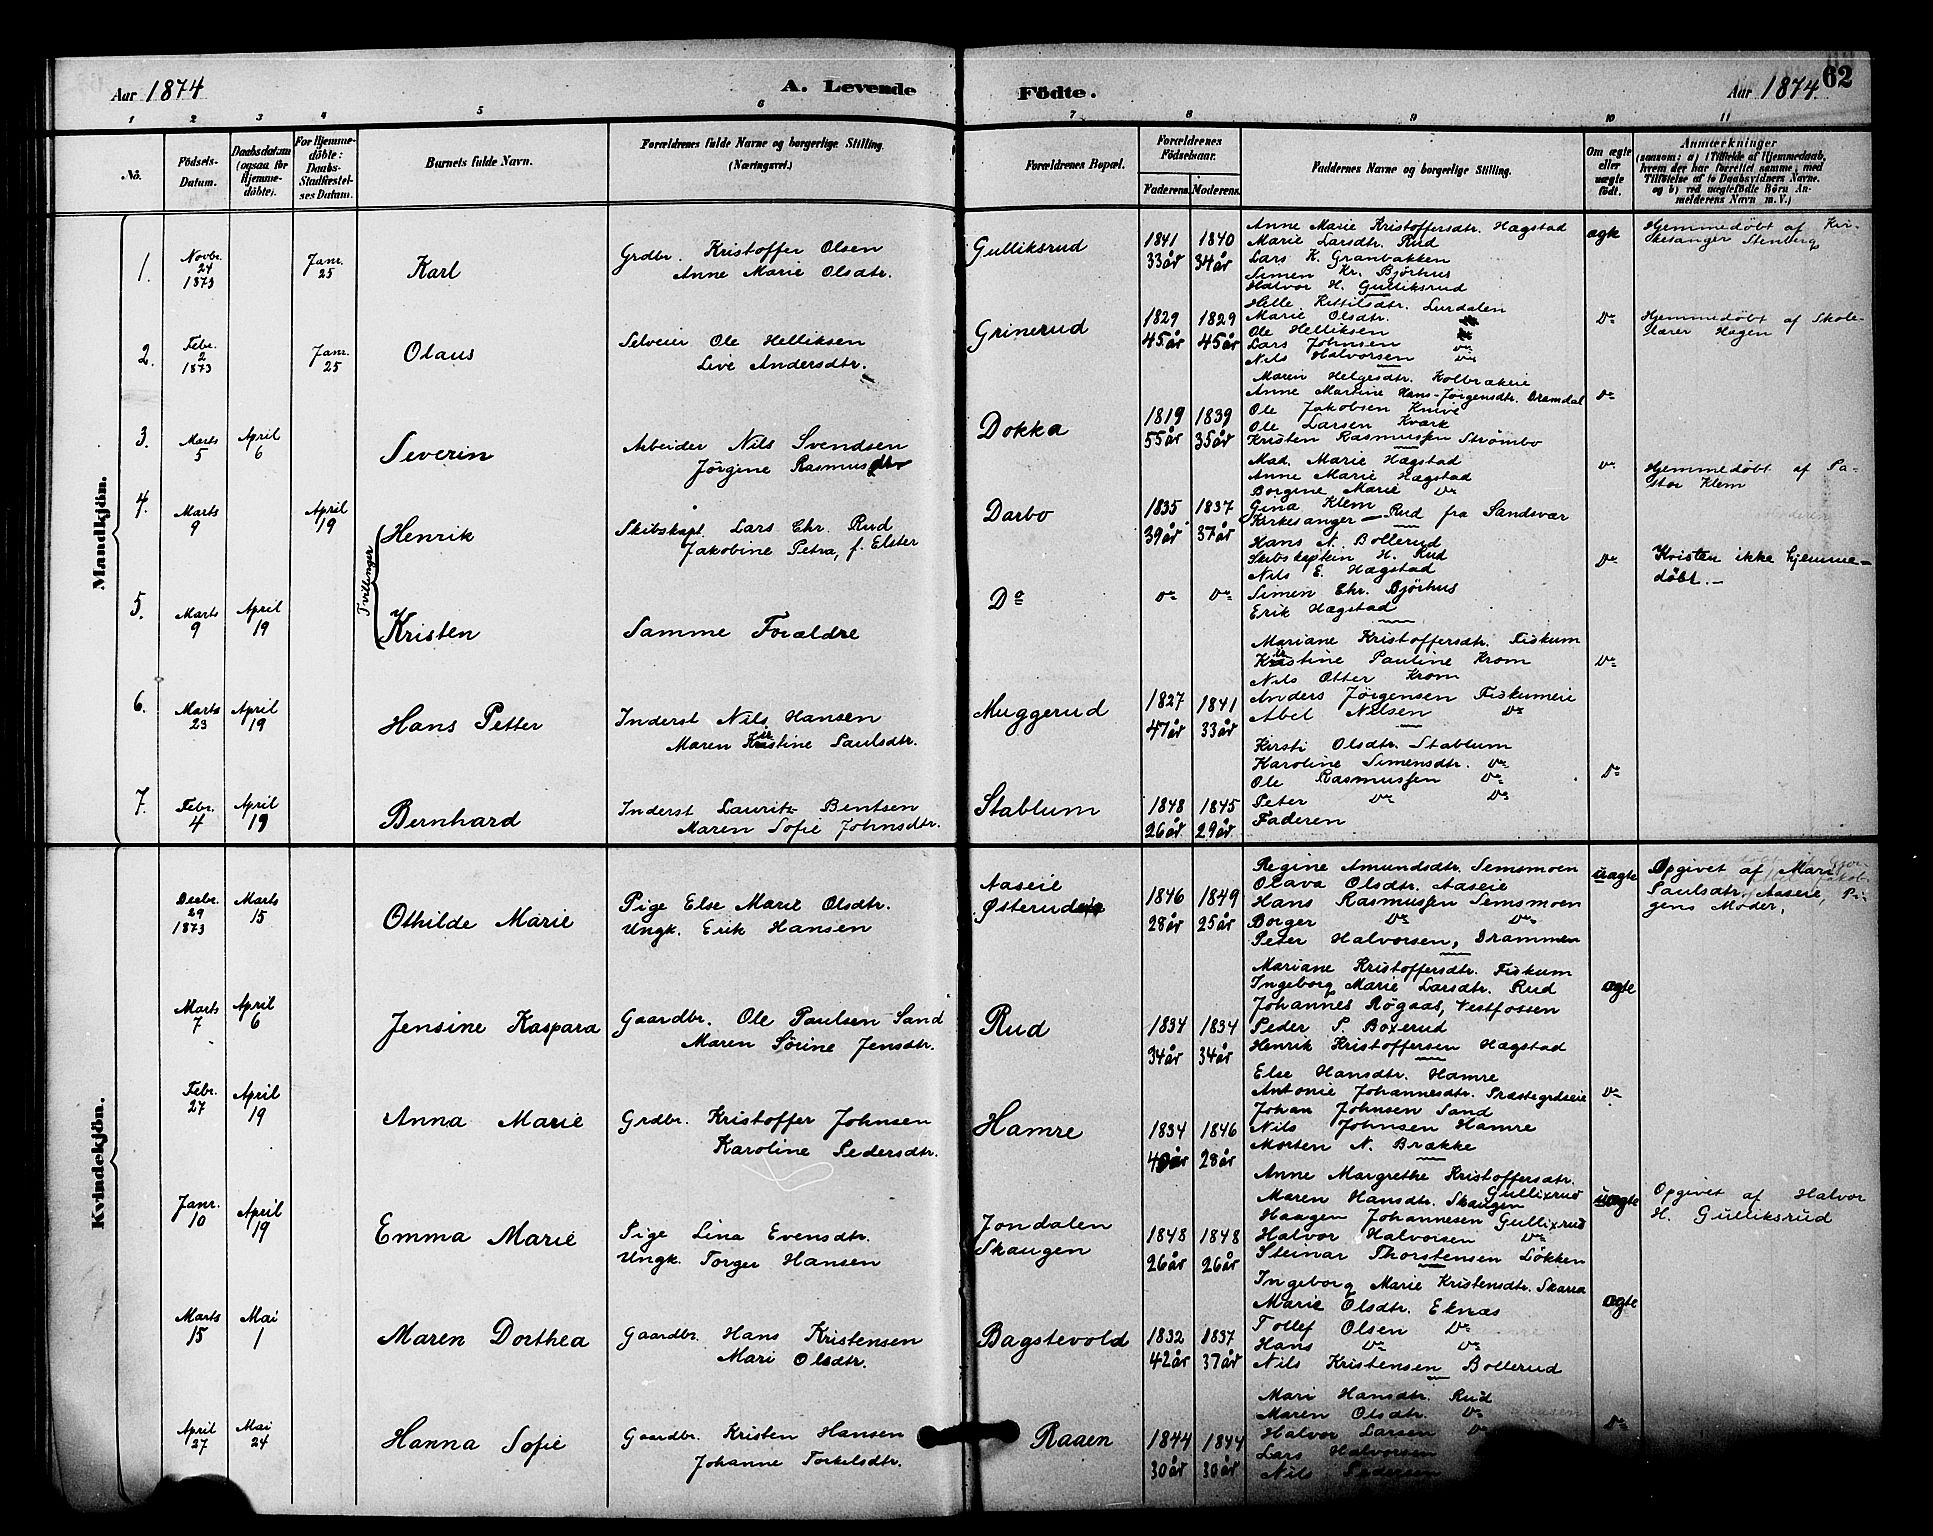 Aar 1874
A. Levende Födte.
Aar 1874
62
1 2 3 4 5 6 7 8 9 10 11
No.
Födsels-Datum.
Daabsdatum (ogsaa for Hjemme-döbte).
For Hjemme-döbte: Daabs-Stadfæstel-ses Datum.
Barnets fulde Navn.
Forældrenes fulde Navne og borgerlige Stilling. (Næringsvei.)
Forældrenes Bopæl.
Forældrenes Födselsaar.
Faderens. Moderens.
Faddernes Navne og borgerlige Stilling.
Om ægte eller uægte födt.
Anmærkninger
(saasom: a) i Tilfælde af Hjemmedaab, hvem der har forrettet samme, med Tilföielse af to Daabsvidners Navne. og b) ved uægtefödte Börn Anmelderens Navn m. V.)
Mandkjön.
1.
Novbr. 24 1873
Janr. 25
Karl
Grdbr. Kristoffer Olsen
Anne Marie Olsdtr.
Gulliksrud
1841 1840
33 år 34 år
Anne Marie Kristoffersdtr. Hægstad
Marie Larsdtr. Rud
Lars K. Granbakken
Simen Kr. Bjørhus
Halvor H. Gulliksrud
ægte
Hjemmedøbt af Kir-
kesanger Stenberg
2.
Febr. 2 1873
Janr. 25
Olaus
Selveier Ole Helliksen
Live Andersdtr.
Grinerud
1829 1829
45 år 45 år
Helle Kittilsdtr. Lurdalen
Marie Olsdtr.
Ole Helliksen
Lars Johnsen Do
Nils Halvorsen Do
Do
Hjemmedøbt af Skole-
lærer Hagen
3.
Marts 5
April 6
Severin
Arbeider Nils Svendsen
Jörgine Rasmusdtr
Dokka
1819 1839
55 år 35 år
Maren Helgesdtr. Kolbrækeie
Anne Martine Hans-Jørgensdtr. Dramdal
Ole Jakobsen Knive
Ole Larsen Kværk
Kristen Rasmussen Strømbo
Do
4.
Marts 9
April 19
Tvillinger
Henrik
Skibskapt. Lars Chr. Rud
Jakobine Petra, f. Elster
Darbo
1835 1837
39 år 37 år
Mad. Marie Hægstad
Anne Marie Hægstad
Borgine Marie Do
Gina Klem
Kirkesanger Rud fra Sandsvær
Do
Hjemmedøbt af Pa-
stor Klem
5.
Marts 9
April 19
Kristen
Samme Forældre
Do
Do Do
Hans N. Bollerud
Skibskaptein H. Rud
Nils E. Hægstad
Simen Chr. Bjørhus
Erik Hægstad
Do
Kristen ikke hjemme-
døbt.
6.
Marts 23
April 19
Hans Petter
Inderst Nils Hansen
Maren Kirstine Paulsdtr.
Muggerud
1827 1841
47 år 33 år
Mariane Kristoffersdtr. Fiskum
Kirstine Pauline Krom
Nils Otter Krom
Anders Jørgensen Fiskumeie
Abel Nilsen Do
Do
7.
Febr. 4
April 19
Bernhard
Inderst Lauritz Bentsen
Maren Sofie Johnsdtr.
Stablum
1848 1845
26 år 29 år
Kirsti Olsdtr. Stablum
Karoline Simensdtr. Do
Ole Rasmussen Do
Peter Do Do
Faderen
Do
Kvindekjön.
Decbr. 29 1873
Marts 15
Othilde Marie
Pige Else Marie Olsdtr.
Ungk. Erik Hansen
Aaseie
Østerud
1846 1849
28 år 25 år
Regine Amundsdtr. Semsmoen
Olava Olsdtr. Aaseie
Hans Rasmussen Semsmoen
Borger Do Do
Peter Halvorsen, Drammen
uægte
Opgivet af Mari
Paulsdtr. Aaseie, Pi-
gens Moder,
Marts 7
April 6
Jensine Kaspara
Gaardbr. Ole Paulsen Sand
Maren Sørine Jensdtr.
Rud
1834 1834
34 år 34 år
Mariane Kristoffersdtr. Fiskum
Ingeborg Marie Larsdtr. Rud
Johannes Røgaas, Vestfossen
Peder P. Boxerud
Henrik Kristoffersen Hægstad
ægte
Febr. 27
April 19
Anna Marie
Grdbr. Kristoffer Johnsen
Karoline Pedersdtr.
Hamre
1834 1846
40 år 28 år
Else Hansdtr. Hamre
Antonie Johannesdtr. Præstegrdseie
Johan Johnsen Sand
Nils Johnsen Hamre
Morten N. Brække
Do
Janr. 10
April 19
Emma Marie
Pige Lina Evensdtr.
Ungk. Torger Hansen
Jondalen
Skaugen
1848 1848
26 år 26 år
Anne Margrethe Kristoffersdtr. Gullixrud
Maren Hansdtr. Skaugen
Haagen Johannesen Gullixrud
Halvor Halvorsen Do
Steinar Thorstensen Løkken
uægte
Opgivet af Halvor
H. Gulliksrud
Marts 15
Mai 1
Maren Dorthea
Gaardbr. Hans Kristensen
Mari Olsdtr.
Bagstevold
1832 1837
42 år 37 år
Ingeborg Marie Kristensdtr. Skarra
Marie Olsdtr. Eknæs
Tollef Olsen Do
Hans Do Do
Nils Kristensen Bollerud
ægte
April 27
Mai 24
Hanna Sofie
Gaardbr. Kristen Hansen
Johanne Torkelsdtr.
Raaen
1844 1844
30 år 30 år
Mari Hansdtr. Rud
Maren Olsdtr. Do
Halvor Larsen Do
Lars Halvorsen
Nils Pedersen
Do